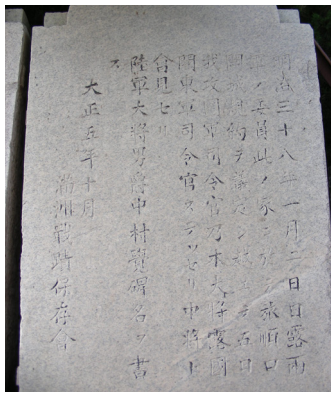 明治三十八年一月二日日露兩
軍ノ委員此ノ家ニ於テ旅順口
開城規約ヲ議定シ越エテ五日
我攻圍軍司令官乃木大將露國
關東軍司令官ステッセリ中將ト
會見セリ
陸軍大將男爵中村覺碑名ヲ書
ス
大正五年十月
滿洲戰蹟保存會